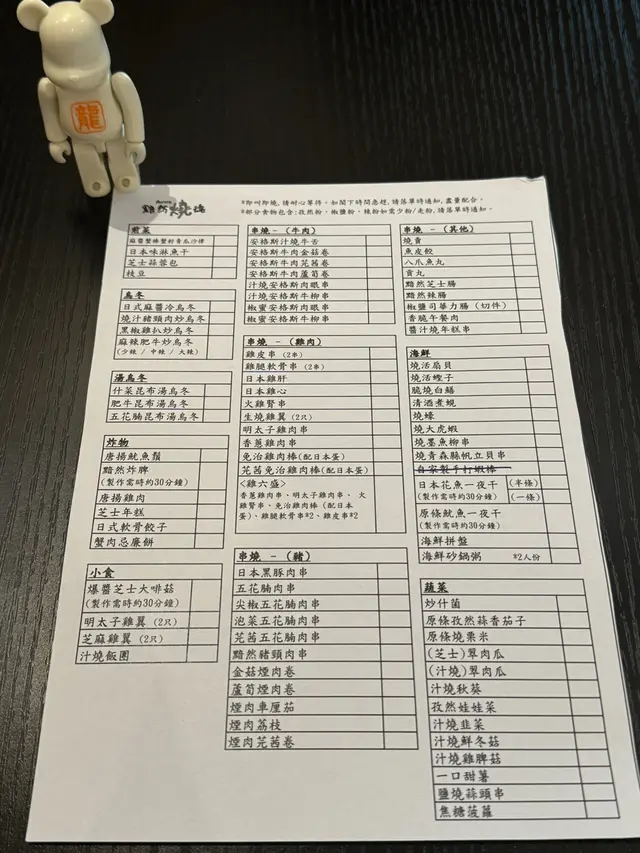 龍
黯然燒鳥
*即叫即燒,請耐心等待。如閣下時間急趕,請落單時通知,盡量配合。
*部分食物包含:孜然粉、椒鹽粉、辣粉如需少粉/走粉,請落單時通知。
前菜
日本味淋魚干
芝士蒜蓉包
枝豆
烏冬
日式麻醬冷烏冬
燒汁豬頸肉炒烏冬
黑椒雞扒炒烏冬
麻辣肥牛炒烏冬
(少辣 / 中辣 / 大辣)
湯烏冬
什菜昆布湯烏冬
肥牛昆布湯烏冬
五花腩昆布湯烏冬
炸物
唐揚魷魚鬚
黯然炸脾
(製作需時約30分鐘)
唐揚雞肉
芝士年糕
日式軟骨餃子
蟹肉忌廉餅
小食
爆醬芝士大啡菇
(製作需時約30分鐘)
明太子雞翼 (2只)
芝麻雞翼 (2只)
汁燒飯團
串燒 - (牛肉)
安格斯汁燒牛舌
安格斯牛肉金菇卷
安格斯牛肉芫茜卷
安格斯牛肉蘆筍卷
汁燒安格斯肉眼串
汁燒安格斯牛柳串
椒蜜安格斯肉眼串
椒蜜安格斯牛柳串
串燒 - (雞肉)
雞皮串 (2串)
雞腿軟骨串 (2串)
日本雞肝
日本雞心
火雞腎串
生燒雞翼 (2只)
明太子雞肉串
香蔥雞肉串
免治雞肉棒(配日本蛋)
芫茜免治雞肉棒(配日本蛋)
<雞六盛>
香蔥雞肉串、明太子雞肉串、火
雞腎串、免治雞肉棒 (配日本
蛋)、雞腿軟骨串*2、雞皮串*2
串燒 - (豬)
日本黑豚肉串
五花腩肉串
尖椒五花腩肉串
泡菜五花腩肉串
芫茜五花腩肉串
黯然豬頸肉串
金菇煙肉卷
蘆筍煙肉卷
煙肉車厘茄
煙肉荔枝
煙肉芫茜卷
串燒 - (其他)
燒賣
魚皮餃
八爪魚丸
貢丸
黯然芝士腸
黯然辣腸
椒鹽司華力腸 (切件)
香脆午餐肉
醬汁燒年糕串
海鮮
燒活扇貝
燒活蟶子
脆燒白鱔
清酒煮蜆
燒蠔
燒大虎蝦
燒墨魚柳串
燒青森縣帆立貝串
自家製手打蝦棒
日本花魚一夜干 (半條)
(製作需時約30分鐘) (一條)
原條魷魚一夜干
(製作需時約30分鐘)
海鮮拼盤
海鮮砂鍋粥 *2人份
蔬菜
炒什菌
原條孜然蒜香茄子
原條燒粟米
(芝士)翠肉瓜
(汁燒)翠肉瓜
汁燒秋葵
孜然娃娃菜
汁燒韭菜
汁燒鮮冬菇
汁燒雞脾菇
一口甜薯
鹽燒蒜頭串
焦糖菠蘿